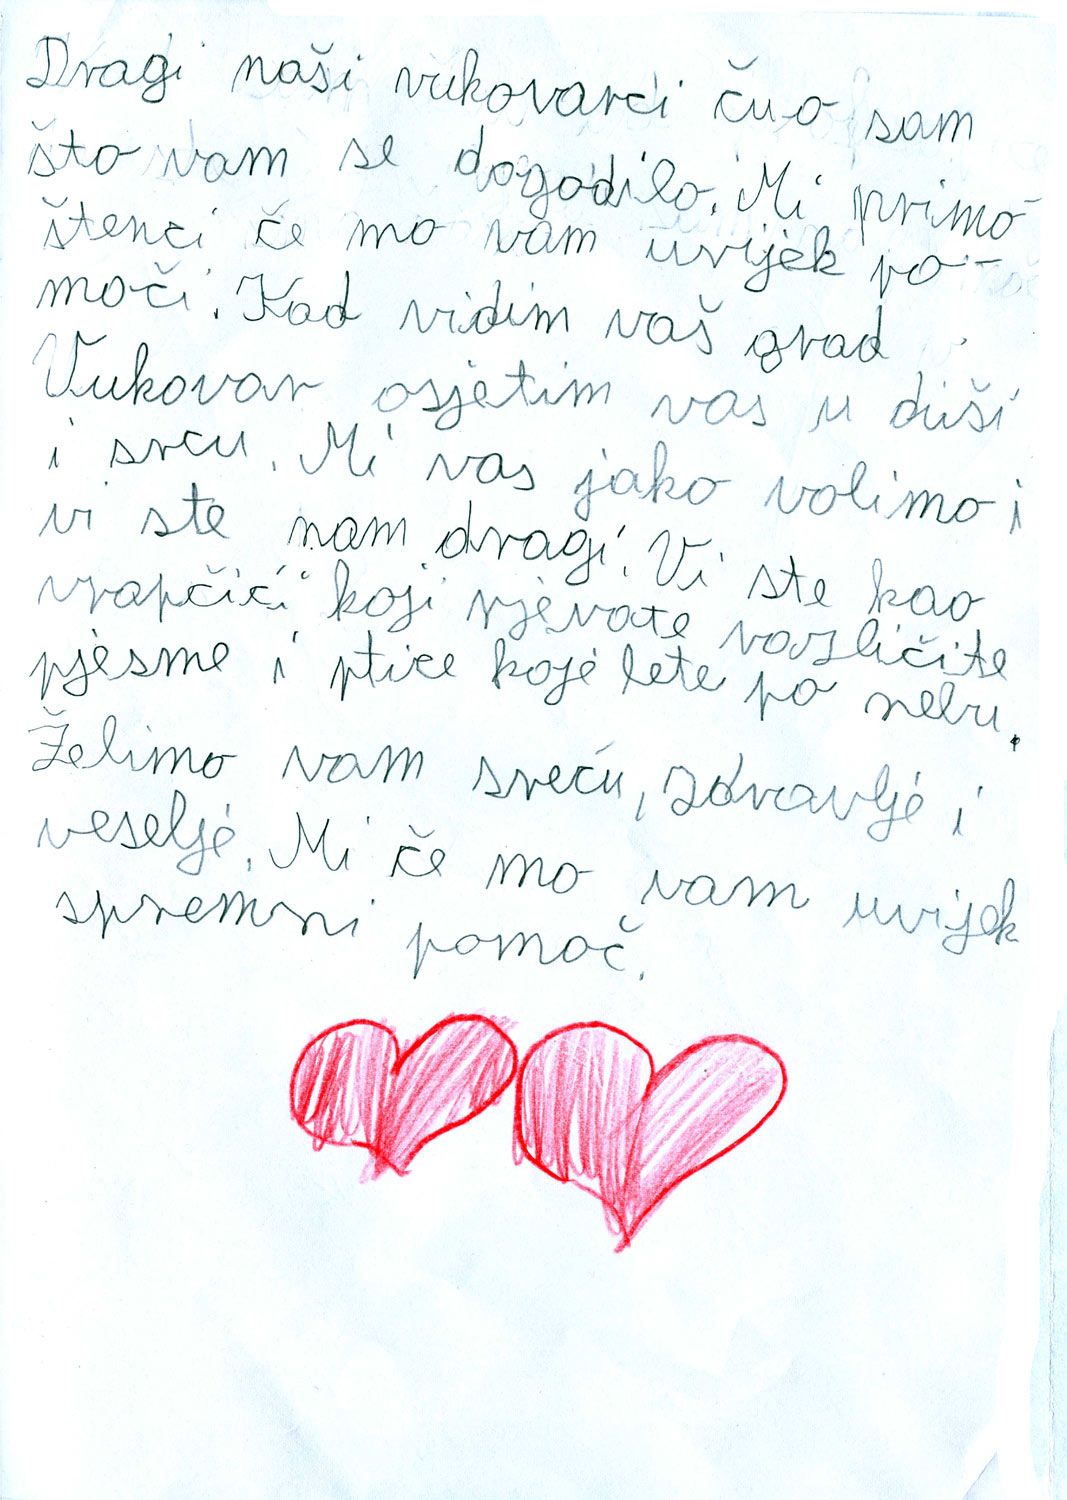 Dragi naši vukovarci čuo sam
što vam se dogodilo. Mi primo-
štenci če mo vam uvijek po-
moči. Kad vidim vaš grad
Vukovar osjetim vas u duši
i srcu. Mi vas jako volimo i
vi ste nam dragi. Vi ste kao
vrapčići koji pjevate različite
pjesme i ptice koje lete po nebu.
Želimo vam sreću, zdravlje i
veselje. Mi če mo vam uvijek
spremni pomoč.